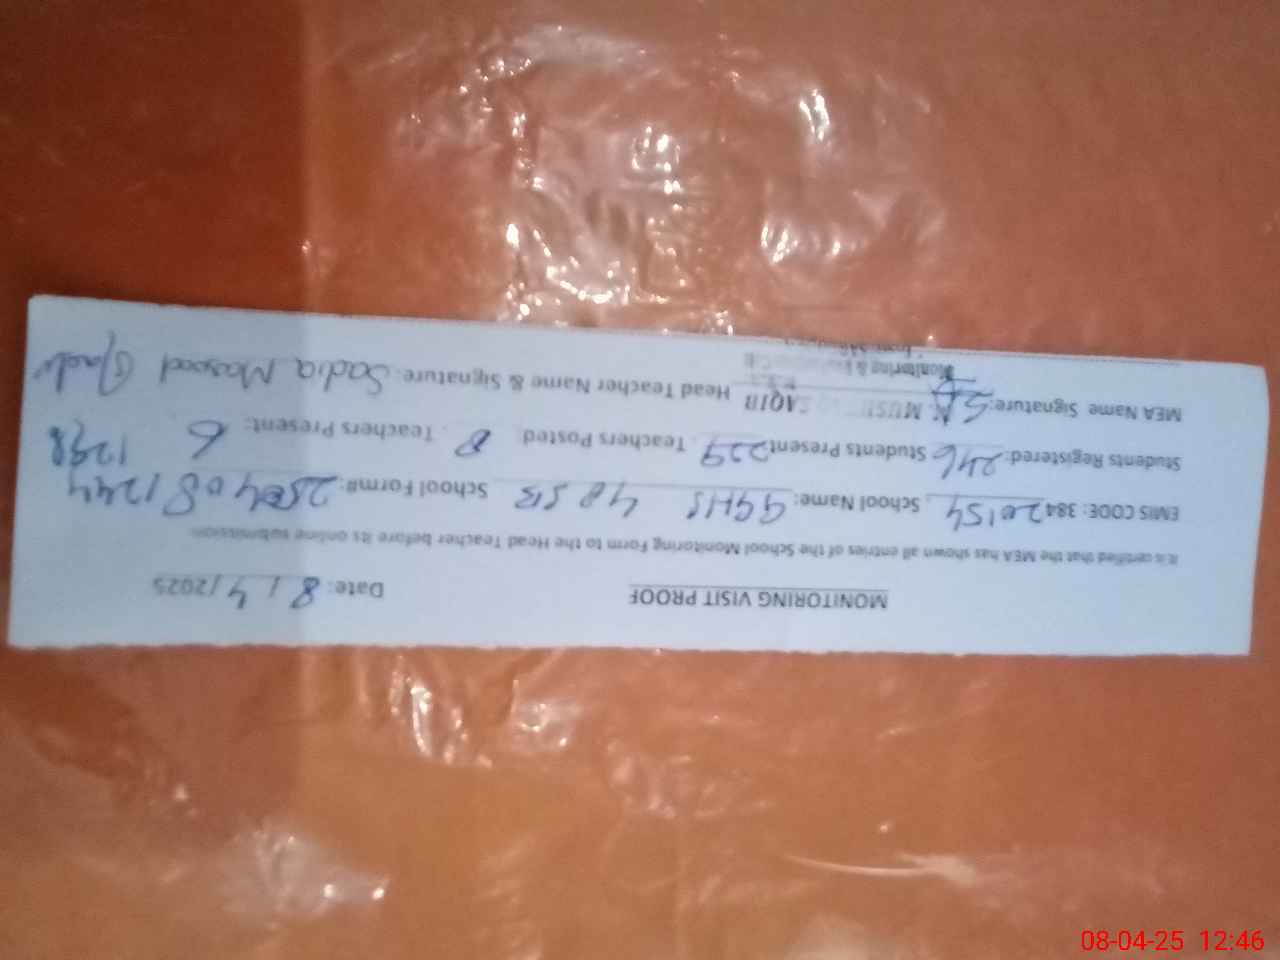 MONITORING VISIT PROOF Date: 8/4/2025
It is certified that the MEA has shown all entries of the School Monitoring Form to the Head Teacher before its online submission
EMIS CODE: 38420154, School Name: GGHS 48 SB School Form#: 250408 1244
1298
Students Registered: 246 Students Present 229. Teachers Posted 8. Teachers Present: 6
MEA Name Signature: SAQIB Head Teacher Name & Signature: Sadia Masood
Monitoring &
08-04-25 12:46